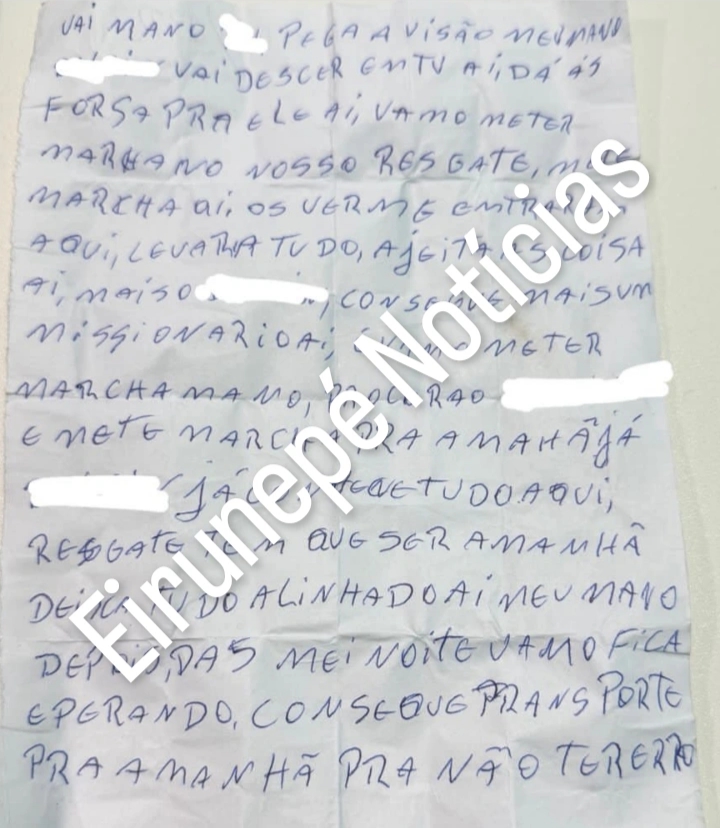 VAI MANO PEGA A VISÃO MEU MANO
VAI DESCER EM TU AI, DÁ ÁS
FORSA PRA ELE AI, VAMO METER
MARCHA NO NOSSO RESGATE, METE
MARCHA AI, OS VERME ENTRARAM
AQUI, LEVARA TUDO, AJEITA AS COISA
AI, MAIS O CONSEGUE MAIS UM
MISSIONARIO AI, VAMO METER
MARCHA MANO, PROCURA O
E METE MARCHA PRA AMAHÃ JÁ
JÁ TUDO AQUI,
RESGATE TEM QUE SER AMANHÃ
DEIXA TUDO ALINHADO AI MEU MANO
DEPOIS, DAS MEI NOITE VAMO FICA
EPERANDO, CONSEGUE TRANSPORTE
PRA AMANHÃ PRA NÃO TER ERRO
Eirunepé Notícias